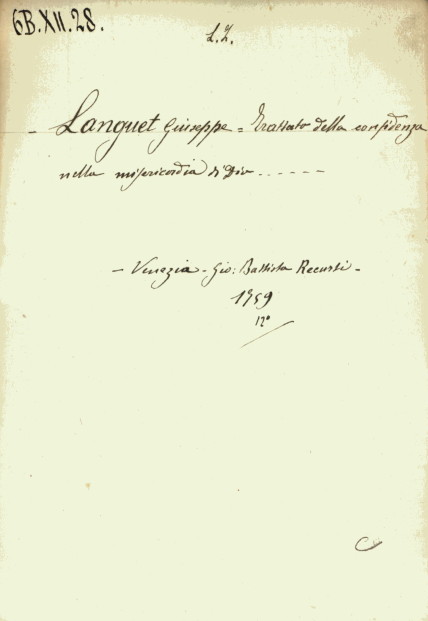 6B.XII.28.
L.Z.
- Languet Giuseppe = Trattato della confidenza
nella misericordia di Dio . - - - - -
- Venezia - Gio: Battista Recurti -
1759
12°